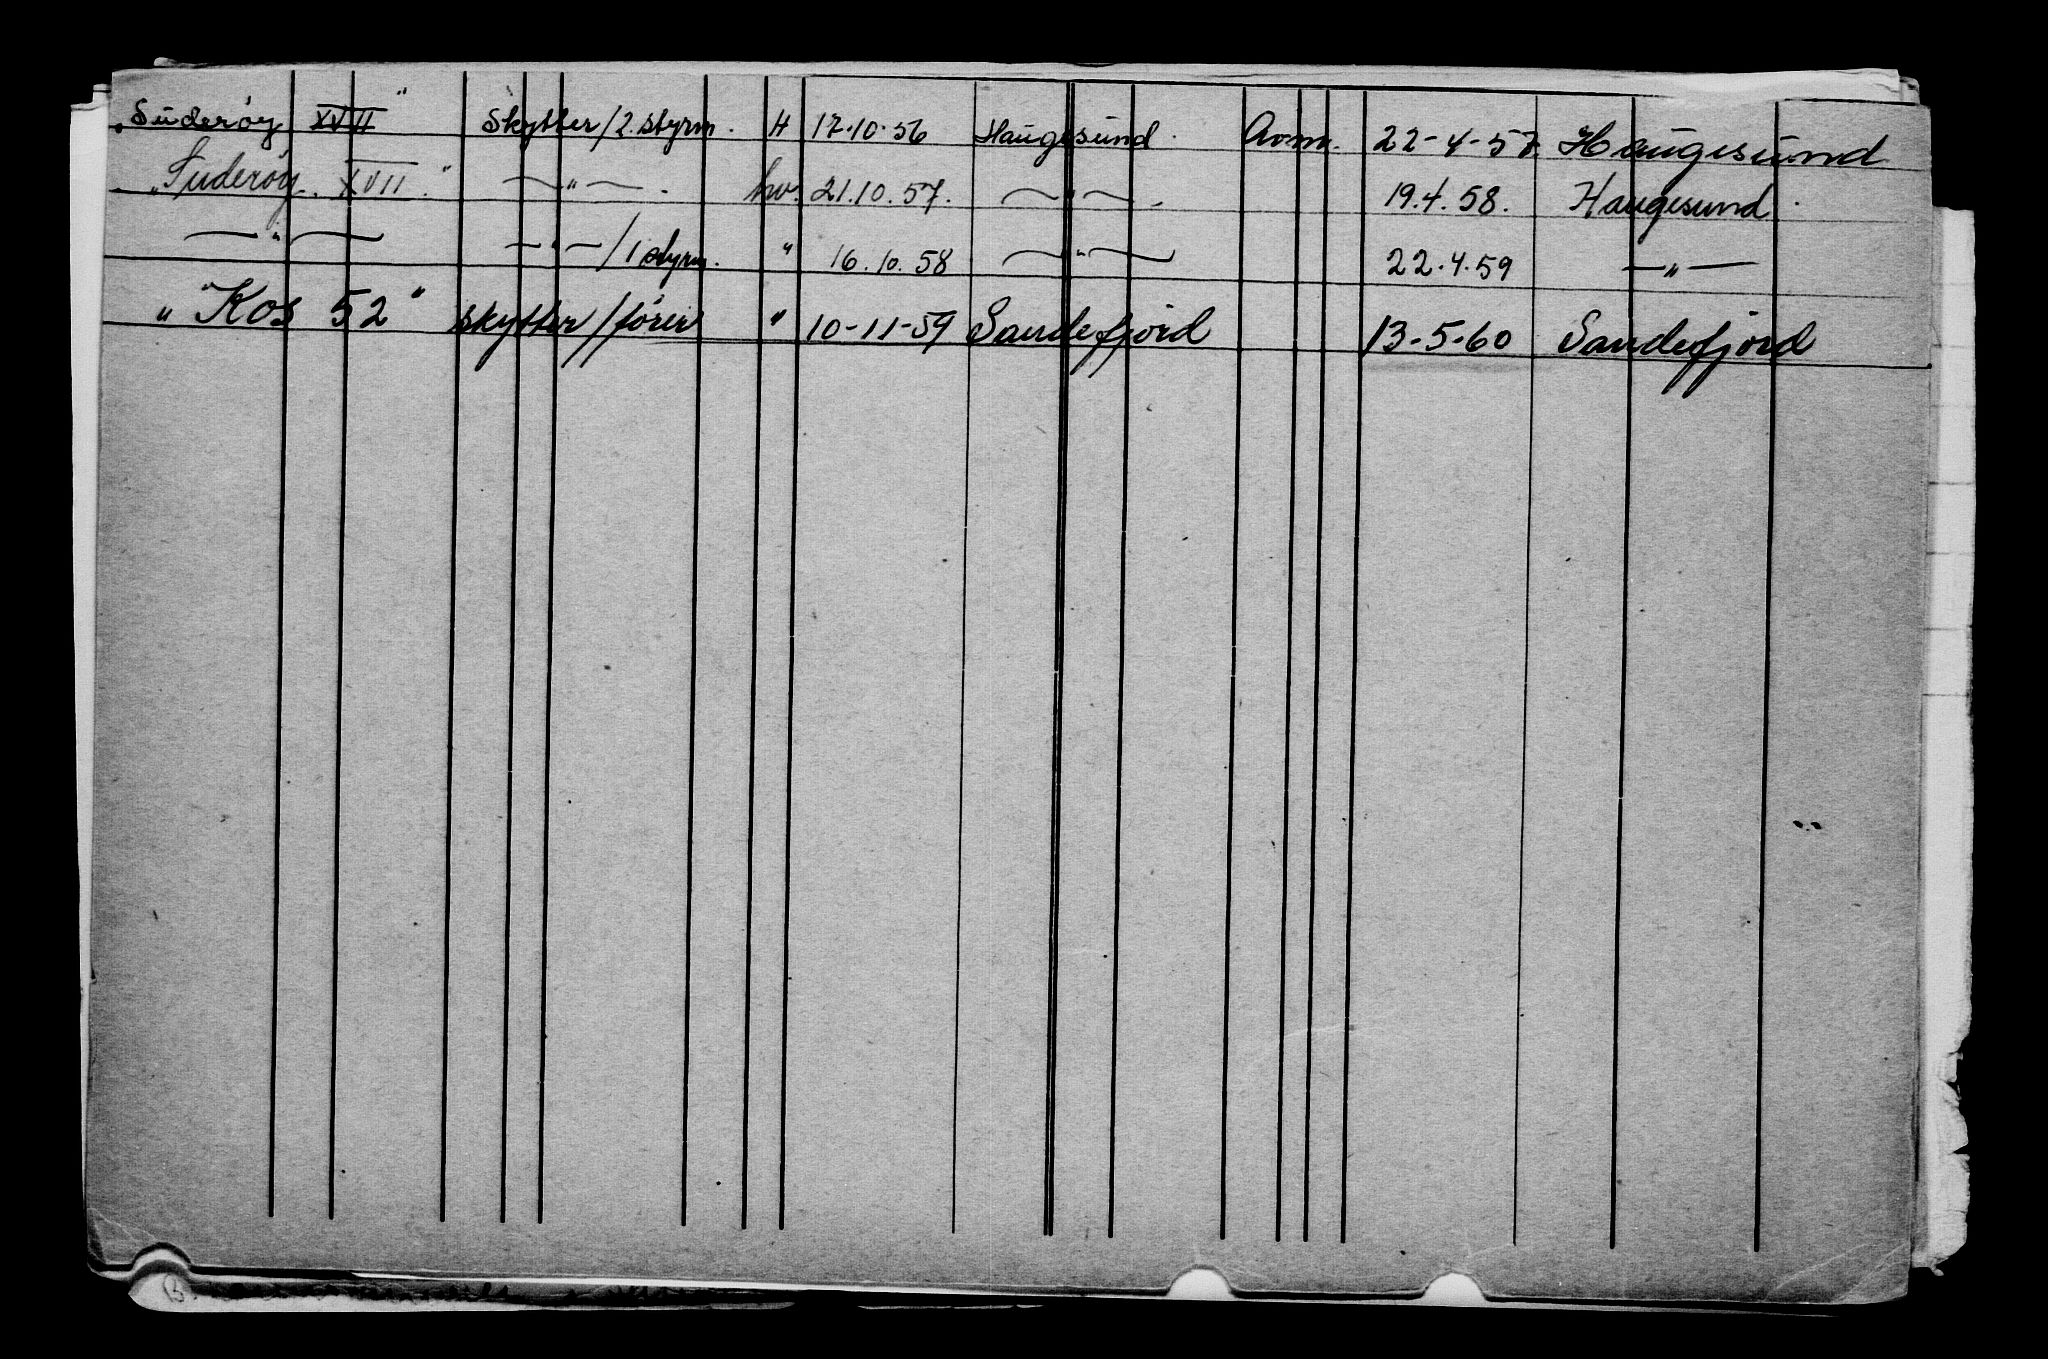 „Suderøy XVII" Skytter/2. styrm. H 17.10.56 Haugesund. Avm. 22-4-57. Haugesund
„Suderøy XVII." —„—. hv. 21.10.57. —„—. 19.4.58. Haugesund.
—„— —„—/1 styrm. " 16.10.58 —„— 22.4.59 —„—
„Kos 52" skytter/fører " 10-11-59 Sandefjord 13-5-60 Sandefjord